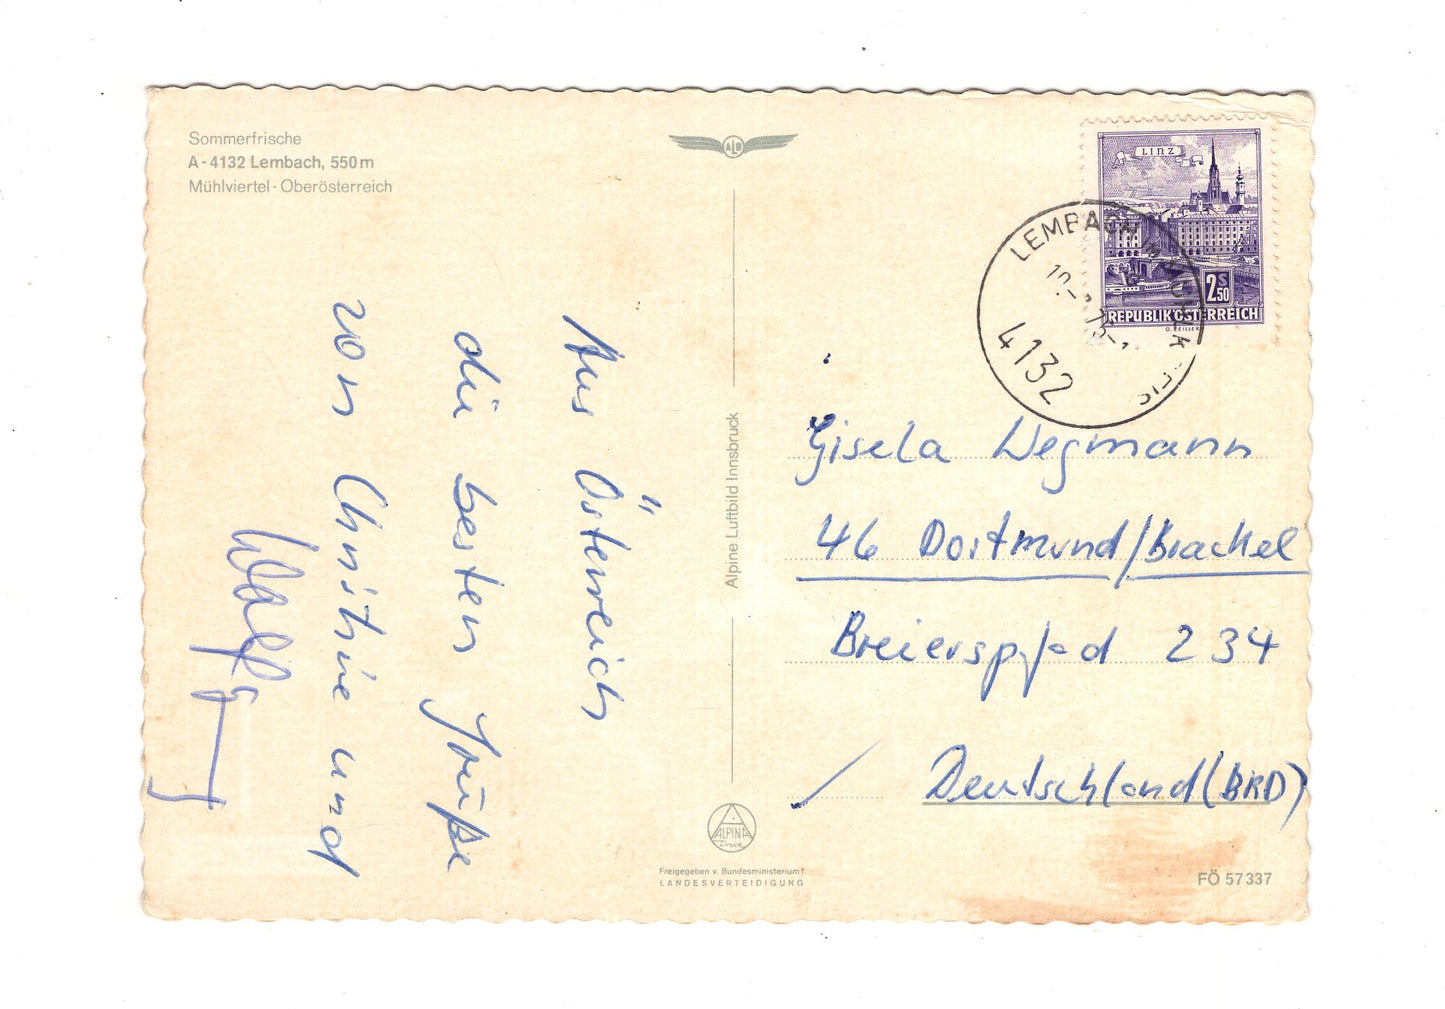 Sommerfrische
A-4132 Lembach, 550m
Mühlviertel-Oberösterreich
ALB
LINZ
2S50
REPUBLIK ÖSTERREICH
LEMBACH
4132
Aus Österreich
die besten Grüße
von Christine und
Wolfg
Alpine Luftbild Innsbruck
Gisela Wegmann
46 Dortmund/Brackel
Breierspfad 234
Deutschland (BRD)
ALPINA
Druck
Freigegeben v. Bundesministerium f.
LANDESVERTEIDIGUNG
FÖ 57337